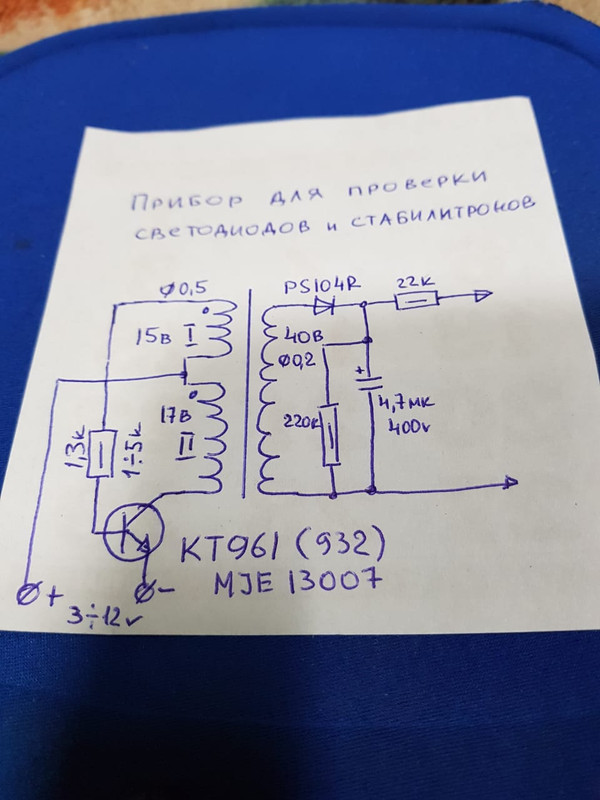 Прибор для проверки
светодиодов и стабилитронов
φ0,5
PS104R
22к
15в I
40в
φ0,2
17в
II
1,3к
1÷5к
220к
+
4,7мк
400v
КТ961 (932)
MJE 13007
+
-
3÷12v